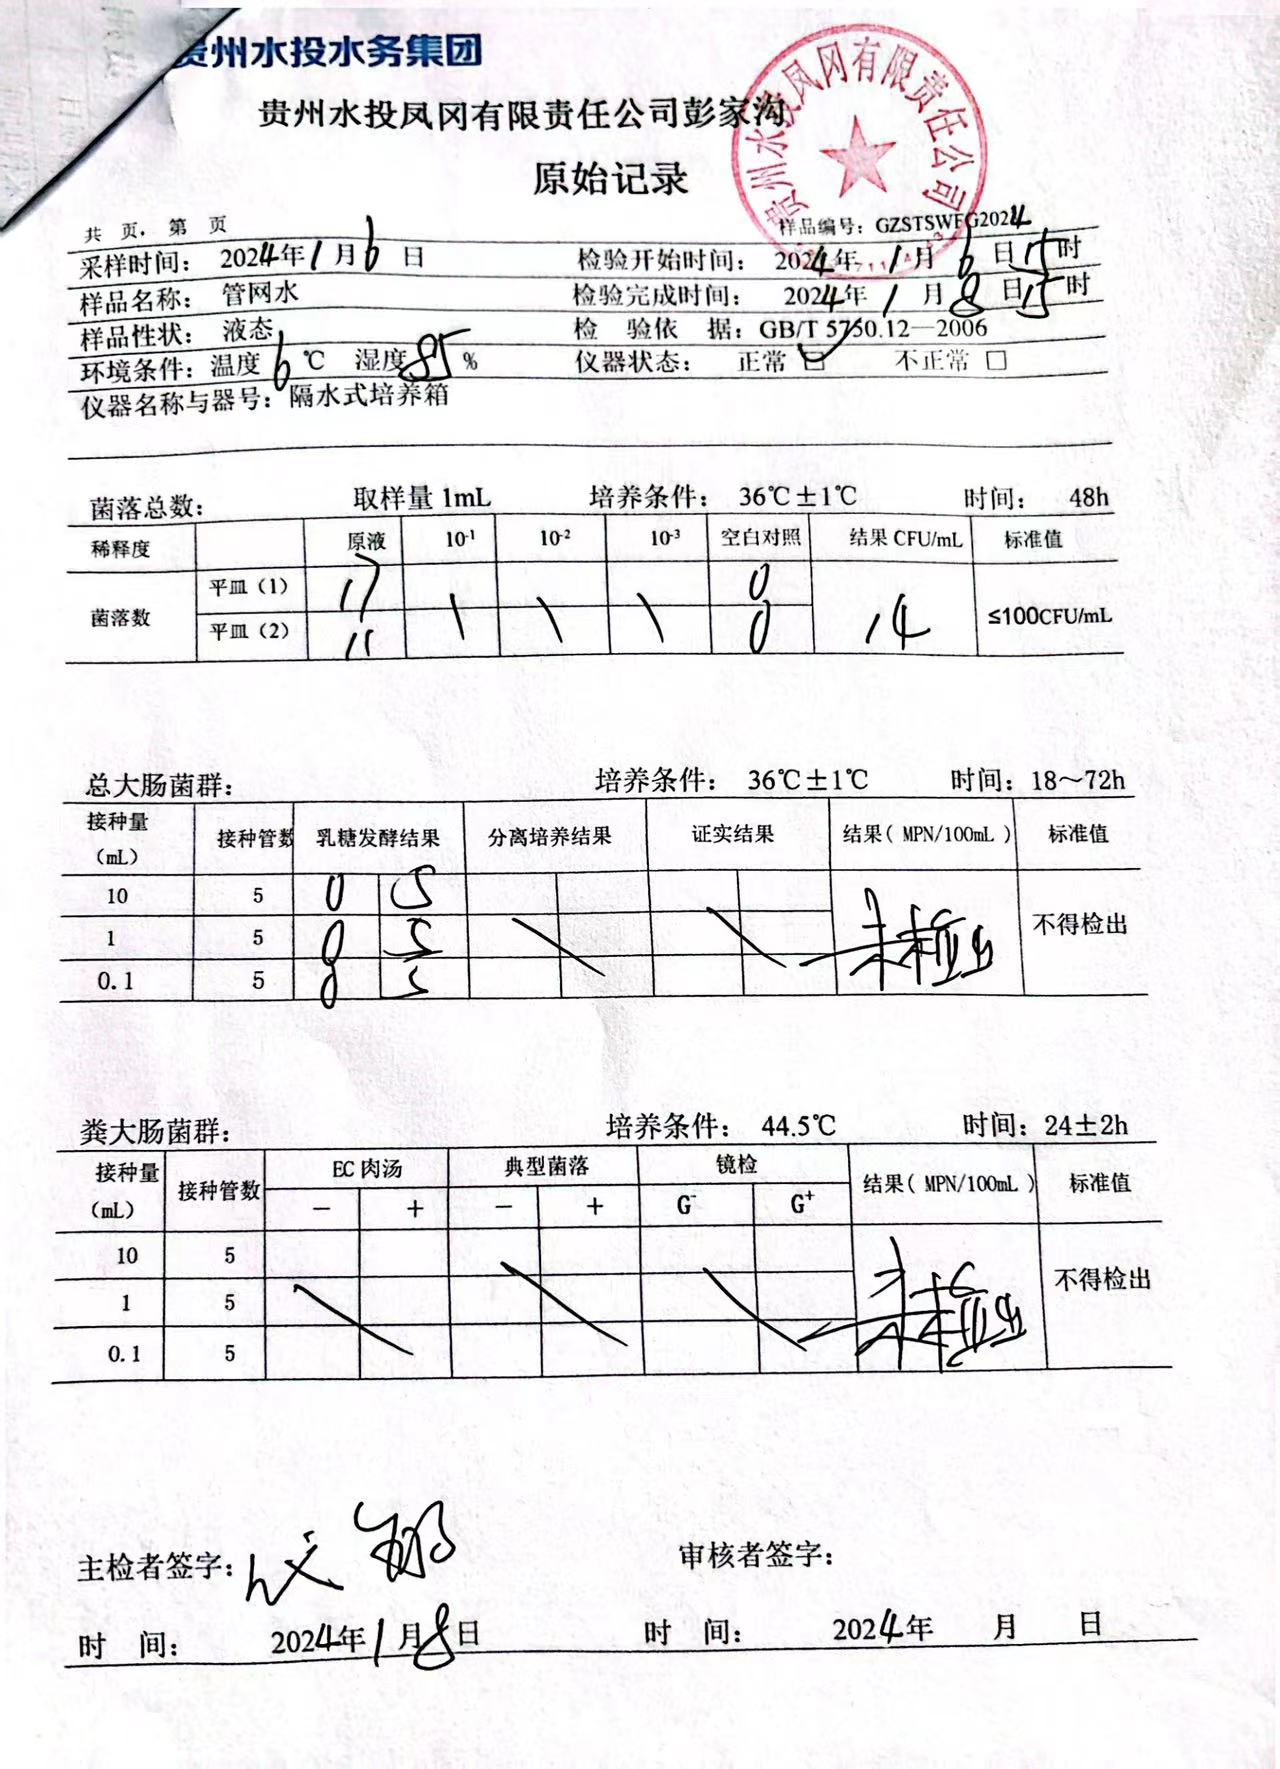 贵州水投水务集团
贵州水投凤冈有限责任公司彭家沟
贵州水投凤冈有限责任公司
原始记录
共 页，第 页
样品编号：GZSTSWFG2024
采样时间： 2024年1月6日 检验开始时间： 2024年1月6日15时
样品名称： 管网水 检验完成时间： 2024年1月8日15时
样品性状： 液态 检 验依 据：GB/T 5750.12—2006
环境条件：温度6℃ 湿度85% 仪器状态： 正常☑ 不正常□
仪器名称与器号：隔水式培养箱
菌落总数： 取样量 1mL 培养条件： 36℃±1℃ 时间： 48h
稀释度 原液 10-1 10-2 10-3 空白对照 结果 CFU/mL 标准值
菌落数 平皿（1） 17 \ \ \ 0 14 ≤100CFU/mL
平皿（2） 11 0
总大肠菌群： 培养条件： 36℃±1℃ 时间：18～72h
接种量（mL） 接种管数 乳糖发酵结果 分离培养结果 证实结果 结果（MPN/100mL） 标准值
10 5 0 5
1 5 0 5 未检出 不得检出
0.1 5 0 5
粪大肠菌群： 培养条件： 44.5℃ 时间：24±2h
接种量（mL） 接种管数 EC 肉汤 典型菌落 镜检 结果（MPN/100mL） 标准值
－ ＋ － ＋ G- G+
10 5
1 5 未检出 不得检出
0.1 5
主检者签字： 审核者签字：
时 间： 2024年1月8日 时 间： 2024年 月 日